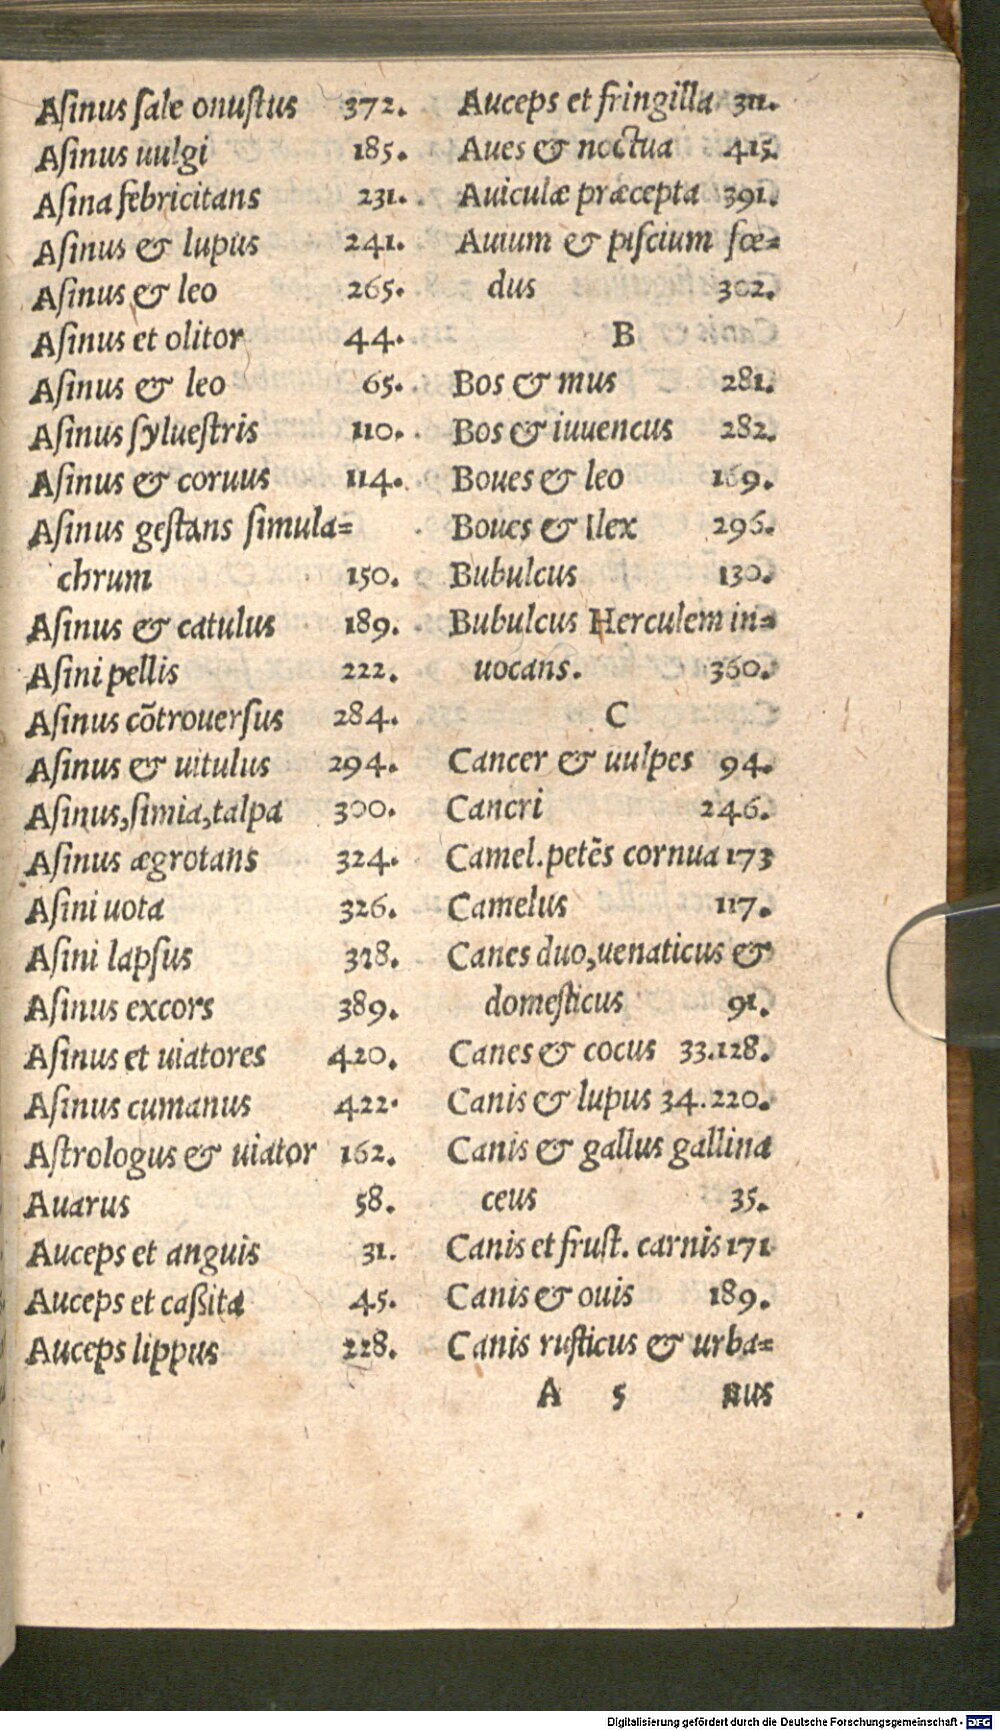 Aſinus ſale onuſtus 372.
Aſinus uulgi 185.
Aſina febricitans 231.
Aſinus & lupus 241.
Aſinus & leo 265.
Aſinus et olitor 44.
Aſinus & leo 65.
Aſinus ſylueſtris 110.
Aſinus & coruus 114.
Aſinus geſtans ſimula=
chrum 150.
Aſinus & catulus 189.
Aſini pellis 222.
Aſinus cõtrouerſus 284.
Aſinus & uitulus 294.
Aſinus,ſimia,talpa 300.
Aſinus ægrotans 324.
Aſini uota 326.
Aſini lapſus 328.
Aſinus excors 389.
Aſinus et uiatores 420.
Aſinus cumanus 422.
Aſtrologus & uiator 162.
Auarus 58.
Auceps et anguis 31.
Auceps et caßita 45.
Auceps lippus 228.
Auceps et fringilla 311.
Aues & noctua 415.
Auiculæ præcepta 391.
Auium & piſcium fœ=
dus 302.
B
Bos & mus 281.
Bos & iuuencus 282.
Boues & leo 169.
Boues & Ilex 296.
Bubulcus 130.
Bubulcus Herculem in=
uocans. 360.
C
Cancer & uulpes 94.
Cancri 246.
Camel.petẽs cornua 173
Camelus 117.
Canes duo,uenaticus &
domeſticus 91.
Canes & cocus 33.128.
Canis & lupus 34.220.
Canis & gallus gallina
ceus 35.
Canis et fruſt. carnis 171
Canis & ouis 189.
Canis ruſticus & urba=
A 5 nus
Digitalisierung gefördert durch die Deutsche Forschungsgemeinschaft - DFG